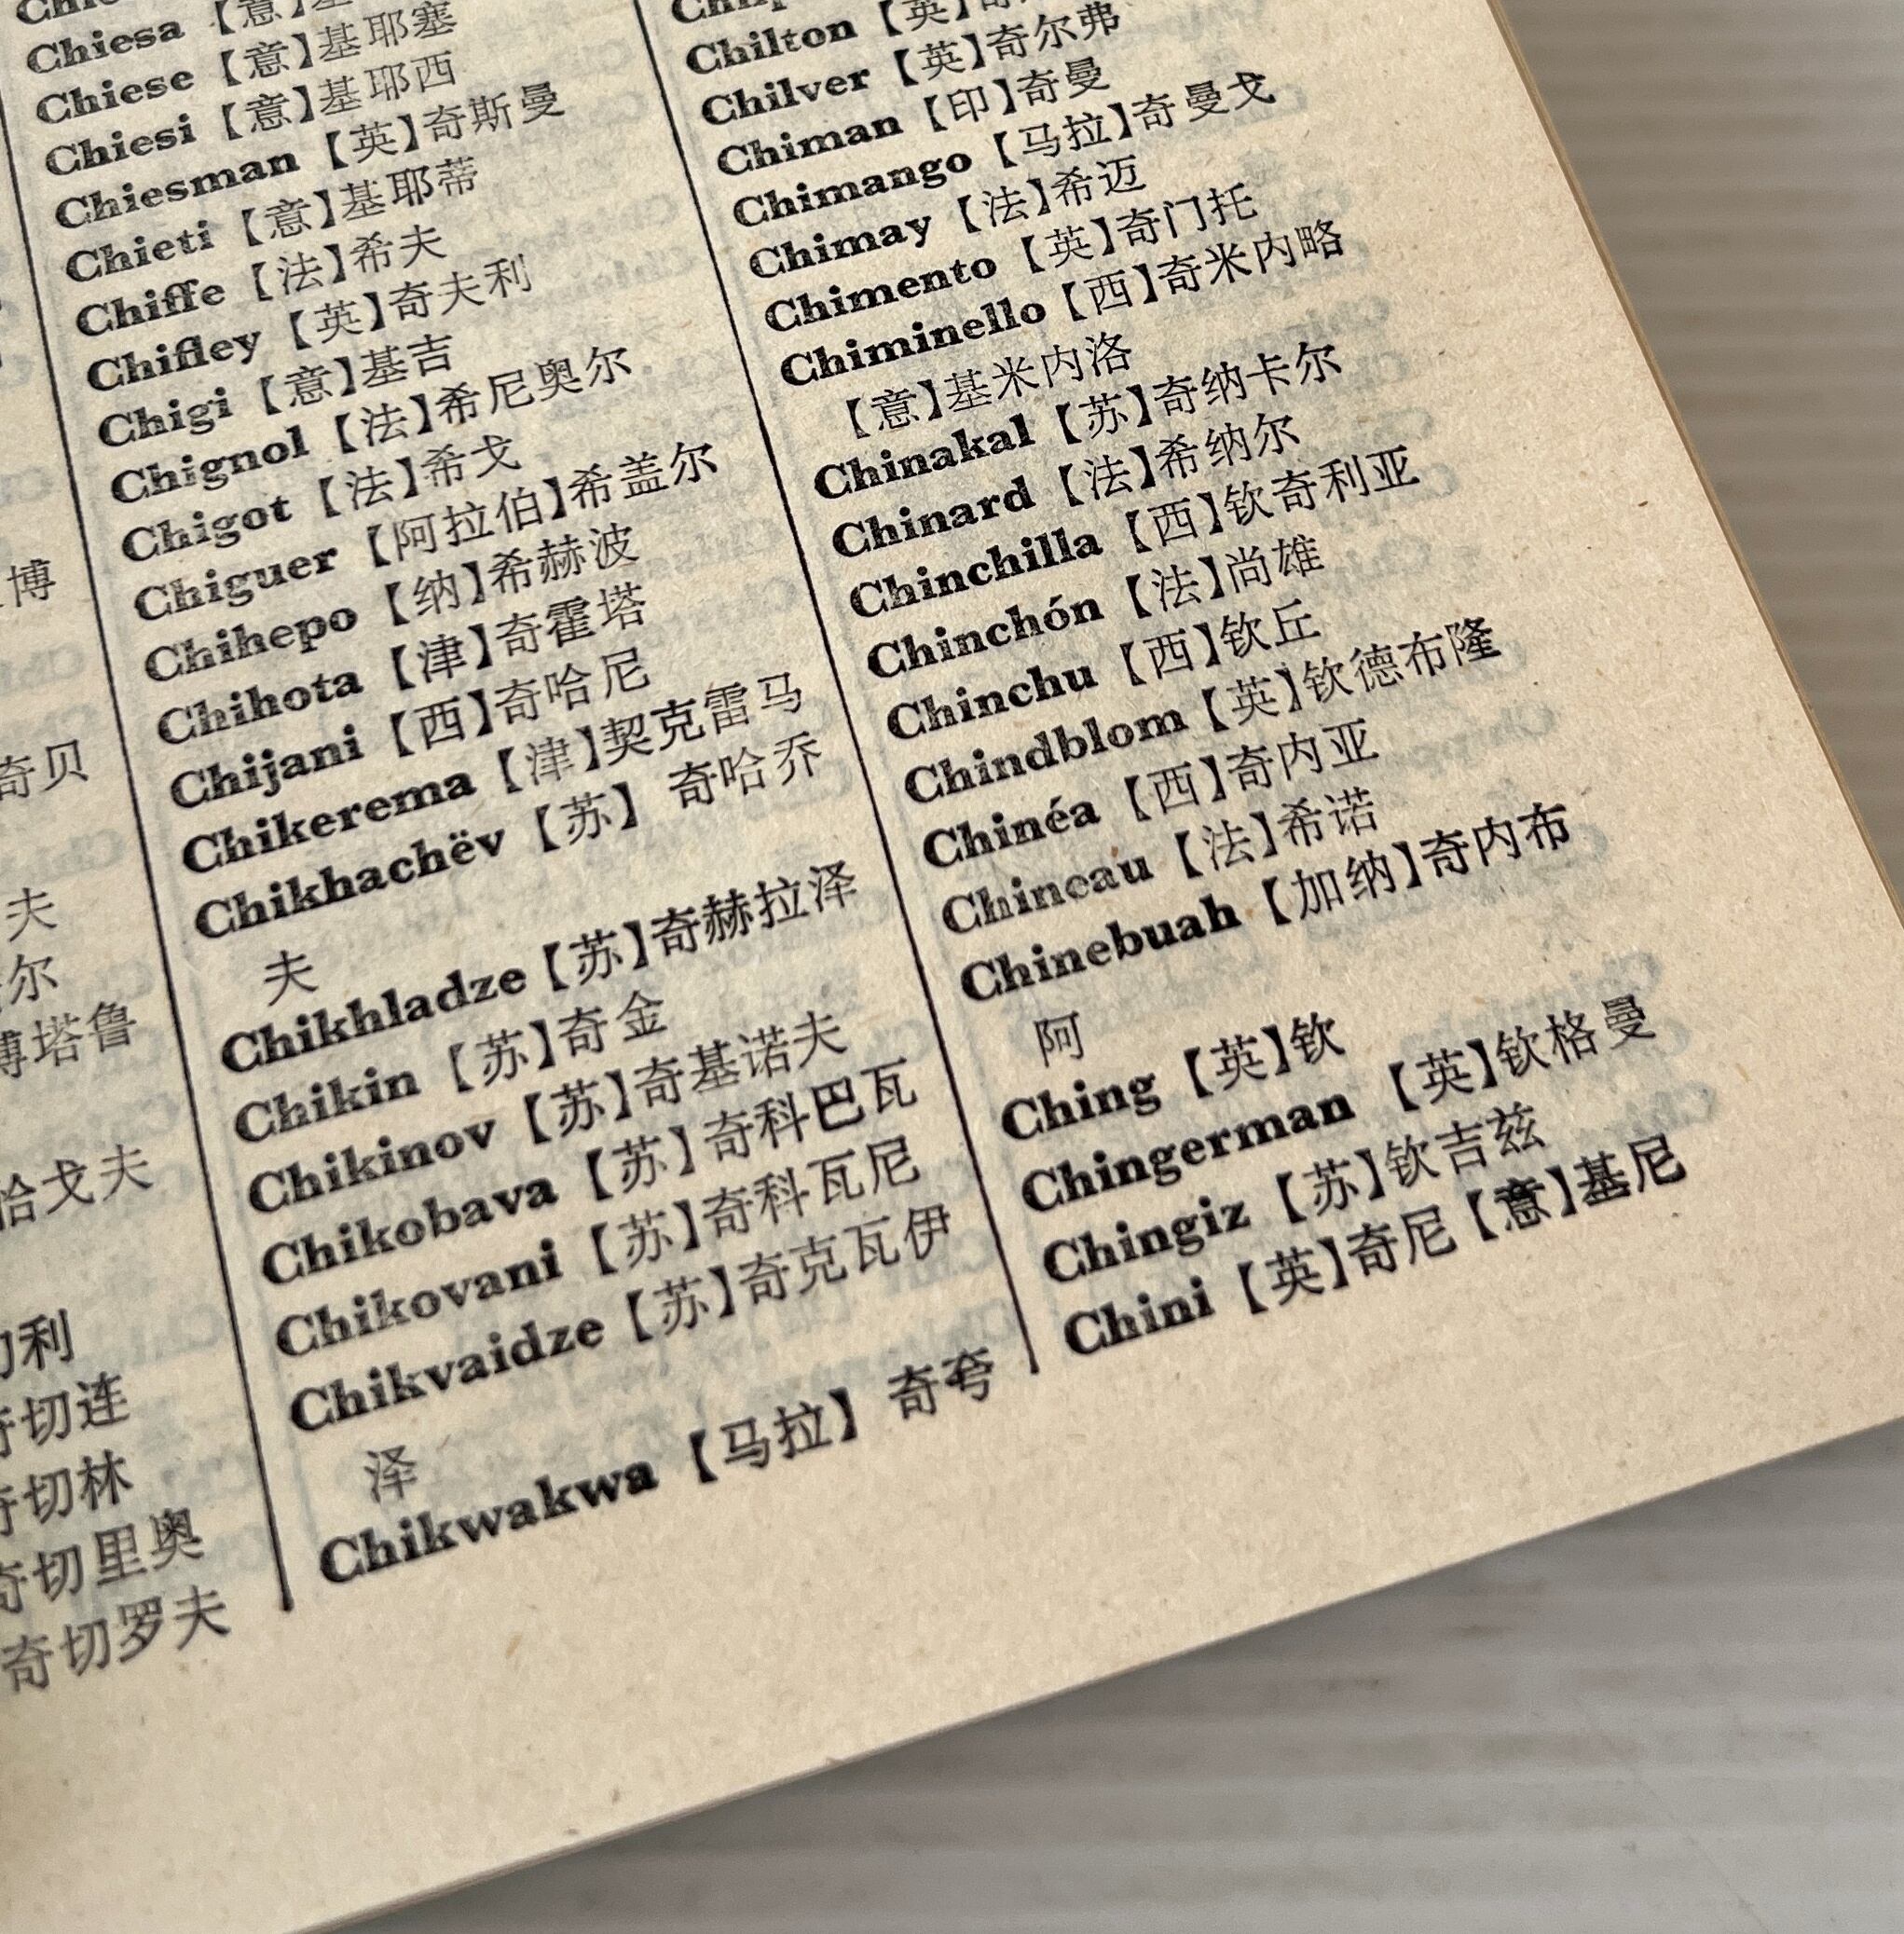 博
奇贝
夫
尔
博塔鲁
哈戈夫
切利
奇切连
奇切林
奇切里奥
奇切罗夫
Chiesa【意】基
Chiese【意】基耶塞
Chiesi【意】基耶西
Chiesman【英】奇斯曼
Chieti【意】基耶蒂
Chiffe【法】希夫
Chifley【英】奇夫利
Chigi【意】基吉
Chignol【法】希尼奥尔
Chigot【法】希戈
Chiguer【阿拉伯】希盖尔
Chihepo【纳】希赫波
Chihota【津】奇霍塔
Chijani【西】奇哈尼
Chikerema【津】契克雷马
Chikhachëv【苏】奇哈乔
夫
Chikhladze【苏】奇赫拉泽
Chikin【苏】奇金
Chikinov【苏】奇基诺夫
Chikobava【苏】奇科巴瓦
Chikovani【苏】奇科瓦尼
Chikvaidze【苏】奇克瓦伊
泽
Chikwakwa【马拉】奇夸
Chilton【英】奇
Chilver【英】奇尔弗
Chiman【印】奇曼
Chimango【马拉】奇曼戈
Chimay【法】希迈
Chimento【英】奇门托
Chiminello【西】奇米内略
【意】基米内洛
Chinakal【苏】奇纳卡尔
Chinard【法】希纳尔
Chinchilla【西】钦奇利亚
Chinchón【法】尚雄
Chinchu【西】钦丘
Chindblom【英】钦德布隆
Chinéa【西】奇内亚
Chineau【法】希诺
Chinebuah【加纳】奇内布
阿
Ching【英】钦
Chingerman【英】钦格曼
Chingiz【苏】钦吉兹
Chini【英】奇尼【意】基尼